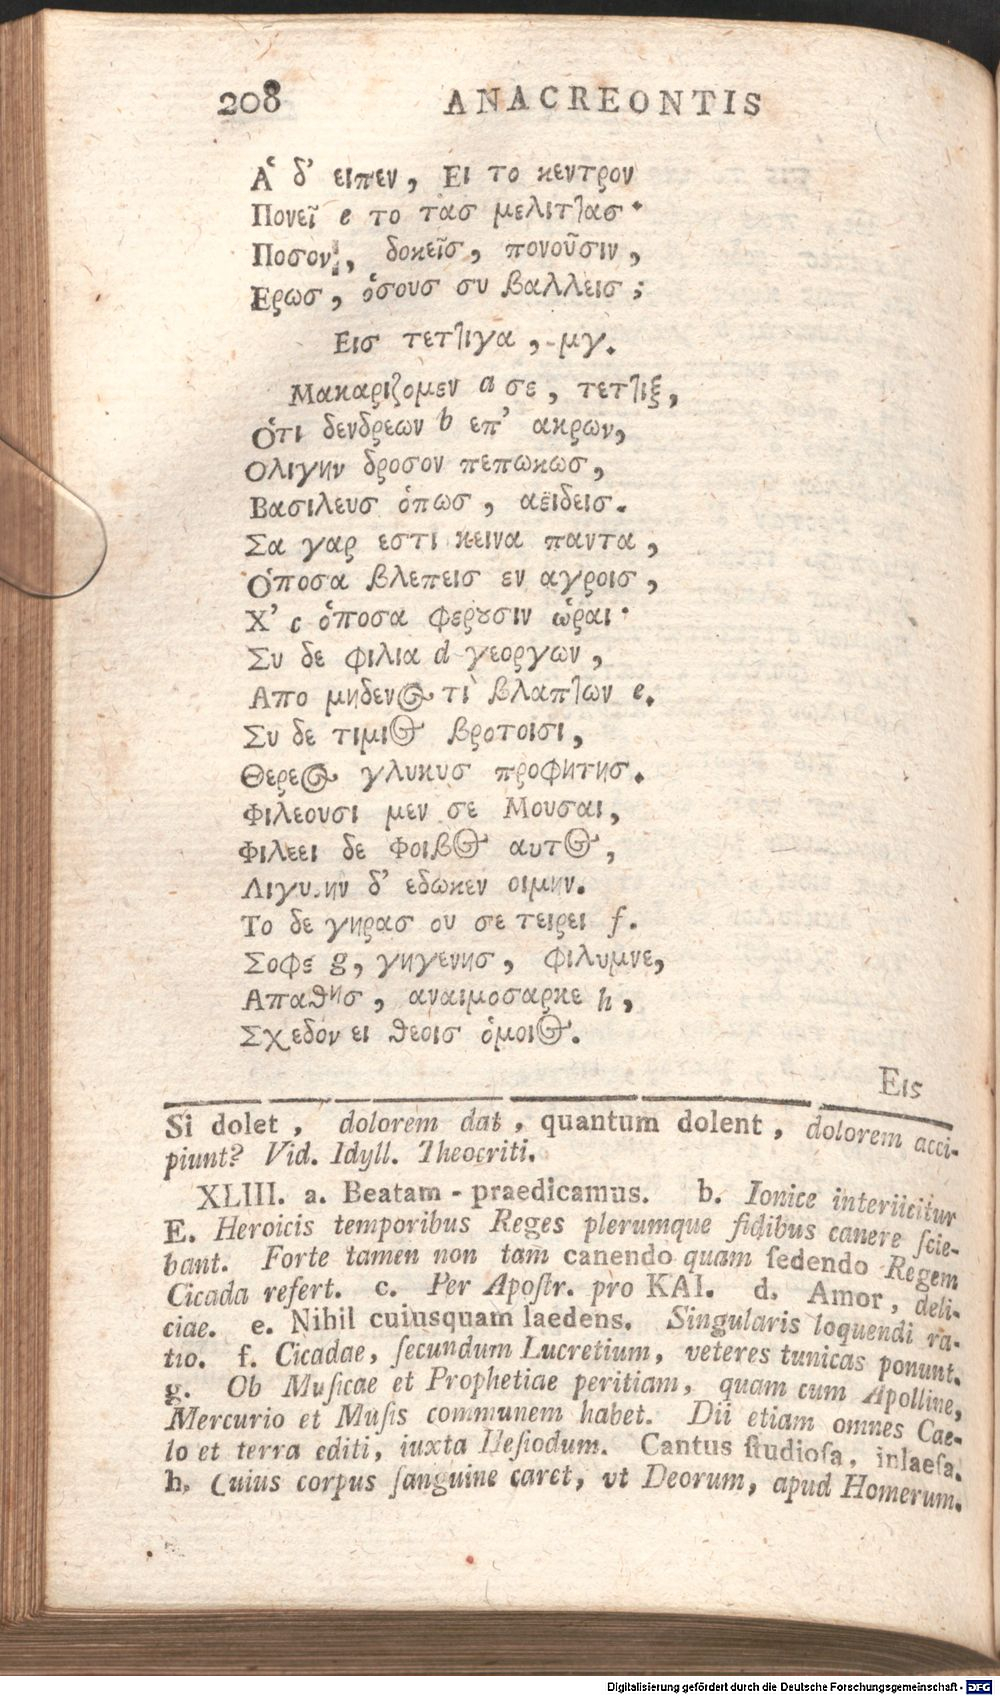 208 ANACREONTIS
Ἁ δ' ειπεν, Ει το κεντρον
Πονεῖ e το τας μελιττας·
Ποσον, δοκεῖς, πονοῦσιν,
Ερως, ὁσους συ βαλλεις;
Εις τεττιγα, μγ.
Μακαριζομεν a σε, τεττιξ,
Ὁτι δενδρεων b επ' ακρων,
Ολιγην δροσον πεπωκως,
Βασιλευς ὁπως, αεϊδεις.
Σα γαρ εστι κεινα παντα,
Ὁποσα βλεπεις εν αγροις,
Χ' c ὁποσα φερȣσιν ὡραι·
Συ δε φιλια d γεοργων,
Απο μηδενος τὶ βλαπτων e.
Συ δε τιμιος βροτοισι,
Θερεος γλυκυς προφητης.
Φιλεουσι μεν σε Μουσαι,
Φιλεει δε Φοιβος αυτος,
Λιγυρην δ' εδωκεν οιμην.
Το δε γηρας ου σε τειρει f.
Σοφε g, γηγενης, φιλυμνε,
Απαθης, αναιμοσαρκε h,
Σχεδον ει θεοις ὁμοιος.
Εις
Si dolet, dolorem dat, quantum dolent, dolorem acci-
piunt? Vid. Idyll. Theocriti.
XLIII. a. Beatam - praedicamus. b. Ionice interiicitur
E. Heroicis temporibus Reges plerumque fidibus canere ſcie-
bant. Forte tamen non tam canendo quam ſedendo Regem
Cicada refert. c. Per Apoſtr. pro KAI. d. Amor, deli-
ciae. e. Nihil cuiusquam laedens. Singularis loquendi ra-
tio. f. Cicadae, ſecundum Lucretium, veteres tunicas ponunt.
g. Ob Muſicae et Prophetiae peritiam, quam cum Apolline,
Mercurio et Muſis communem habet. Dii etiam omnes Cae-
lo et terra editi, iuxta Heſiodum. Cantus ſtudioſa, inlaeſa.
h. Cuius corpus ſanguine caret, vt Deorum, apud Homerum.
Digitalisierung gefördert durch die Deutsche Forschungsgemeinschaft - DFG